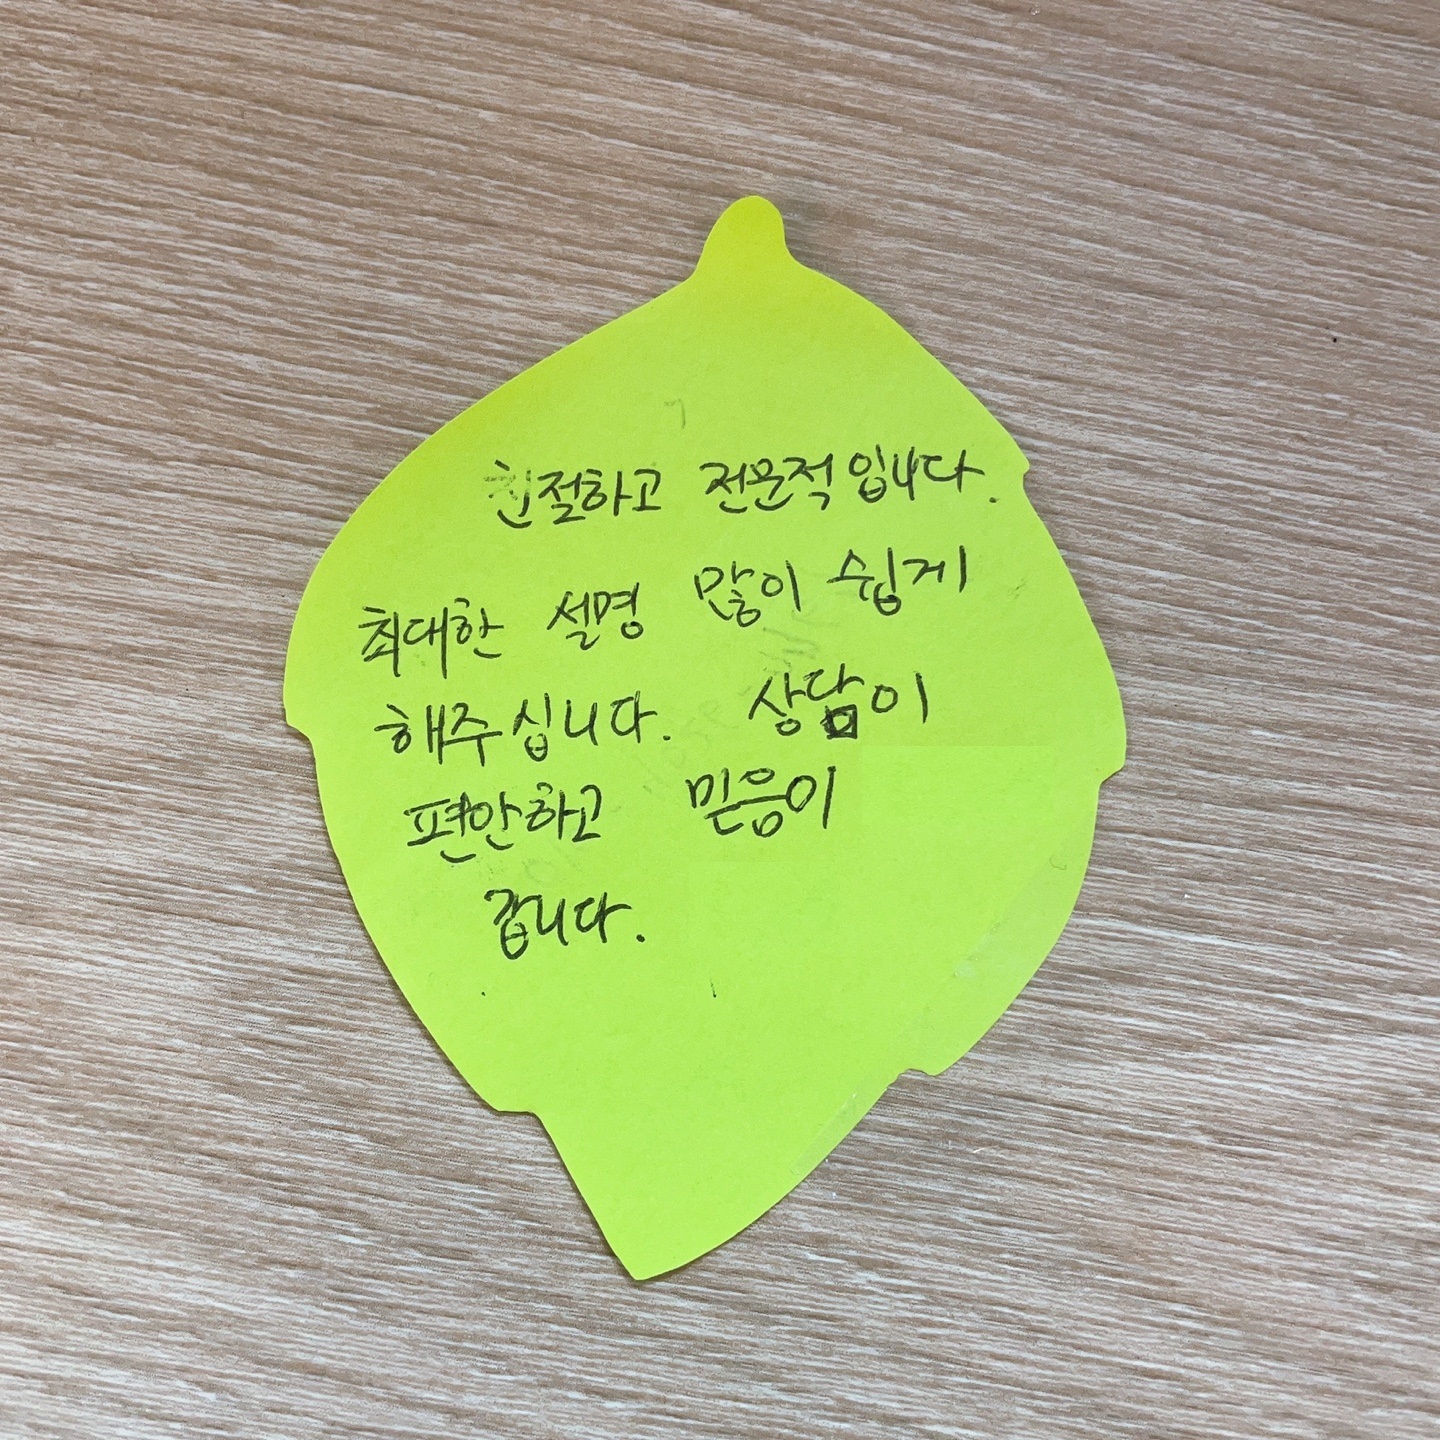 친절하고 전문적입니다.
최대한 설명 많이 쉽게
해주십니다. 상담이
편안하고 믿음이
갑니다.